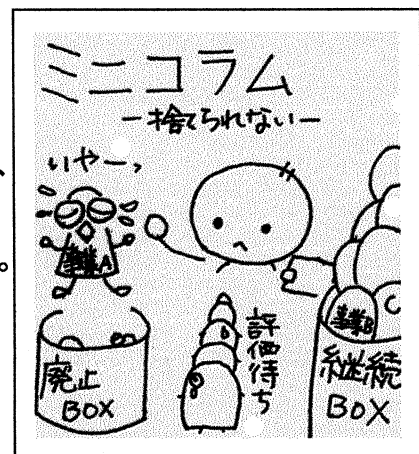 ミニコラム
－捨てられない－
いやーっ
事業A
廃止
BOX
評価待ち
事業B
継続
BOX